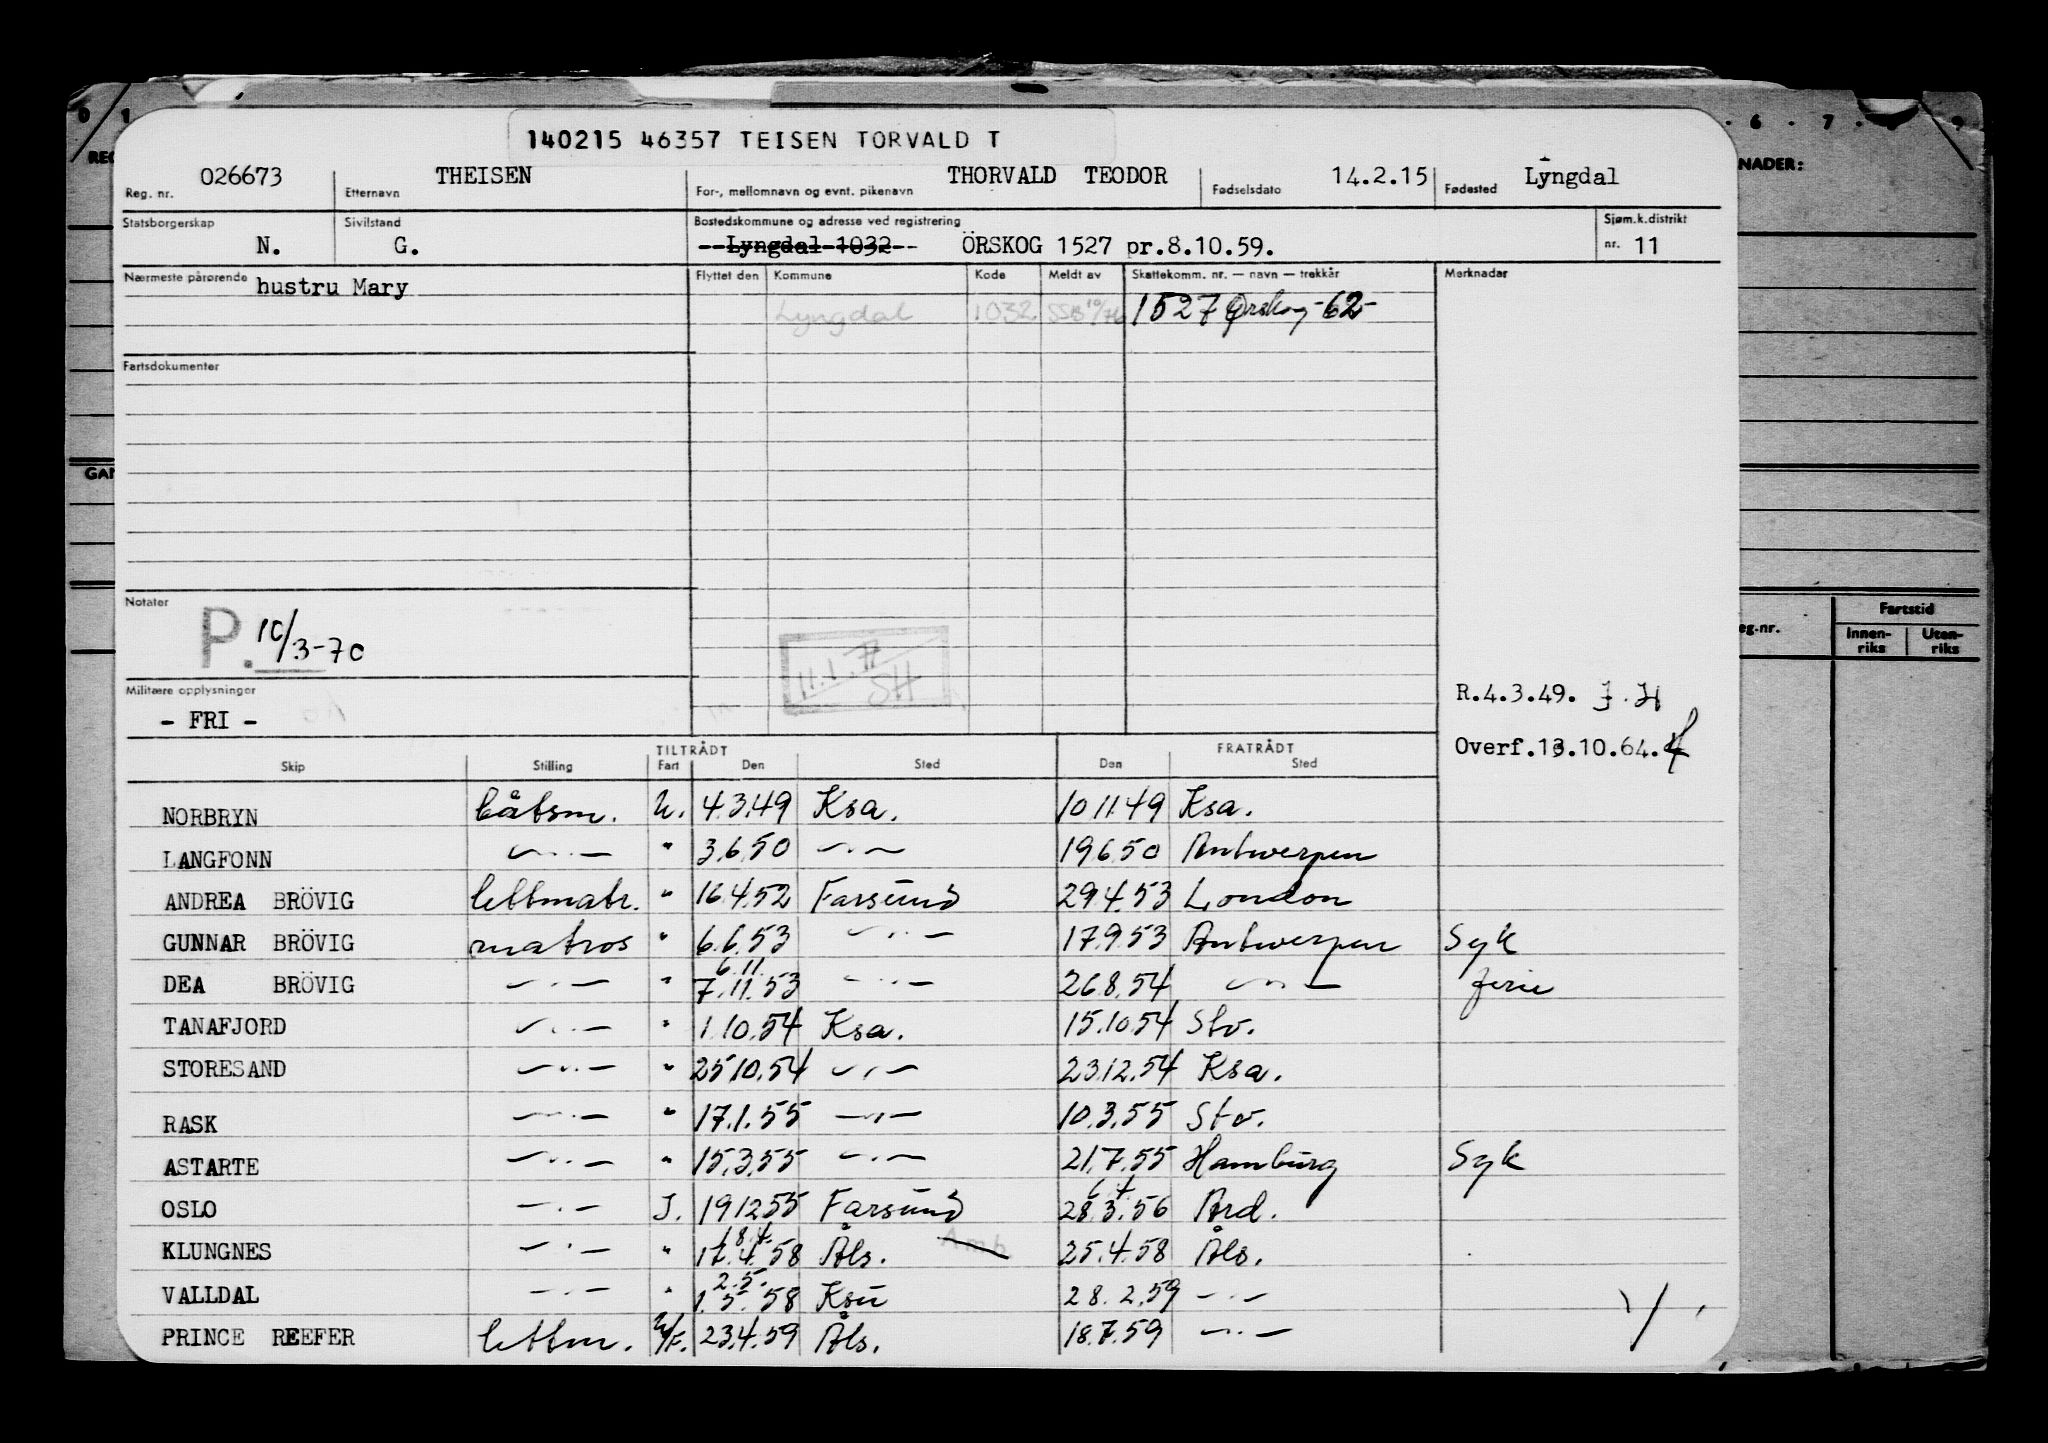 140215 46357 TEISEN TORVALD T
Reg. nr. 026673 Etternavn THEISEN For-, mellomnavn og evnt. pikenavn THORVALD TEODOR Fødselsdato 14.2.15 Fødested Lyngdal
Statsborgerskap N. Sivilstand G. Bostedskommune og adresse ved registrering Lyngdal 1032 ÖRSKOG 1527 pr.8.10.59. Sjøm.k.distrikt nr. 11
Nærmeste pårørende hustru Mary Flyttet den Kommune Kode Meldt av Skattekomm. nr. — navn — trekkår Merknader
Lyngdal 1032 SSB 10/76 1527 Ørskog -62-
Fartsdokumenter
Notater
P. 10/3-70
11.1.77
SH
Militære opplysninger
- FRI -
R.4.3.49. J.H
Overf.13.10.64.
TILTRÅDT FRATRÅDT
Skip Stilling Fart Den Sted Den Sted
NORBRYN båtsm. U. 4.3.49 Ksa. 10.11.49 Ksa.
LANGFONN —"— " 3.6.50 —"— 19.6.50 Antwerpen
ANDREA BRÖVIG lettmatr. " 16.4.52 Farsund 29.4.53 London
GUNNAR BRÖVIG matros " 6.6.53 —"— 17.9.53 Antwerpen Syk
6.11.
DEA BRÖVIG —"— " 7.11.53 —"— 26.8.54 —"— ferie
TANAFJORD —"— " 1.10.54 Ksa. 15.10.54 Stv.
STORESAND —"— " 25.10.54 —"— 23.12.54 Ksa.
RASK —"— " 17.1.55 —"— 10.3.55 Stv.
ASTARTE —"— " 15.3.55 —"— 21.7.55 Hamburg Syk
OSLO —"— I. 19.12.55 Farsund 28.3.56 Ard.
18.4.
KLUNGNES —"— " 17.4.58 Åls. Amb. 25.4.58 Åls.
2.5.
VALLDAL —"— " 1.5.58 Ksu 28.2.59 —"—
PRINCE REEFER lettm. U/F. 23.4.59 Åls. 18.7.59 —"—
0 1 6 . 7 . 9
NADER:
eg.-nr.
Fartstid
Innen-
riks
Uten-
riks